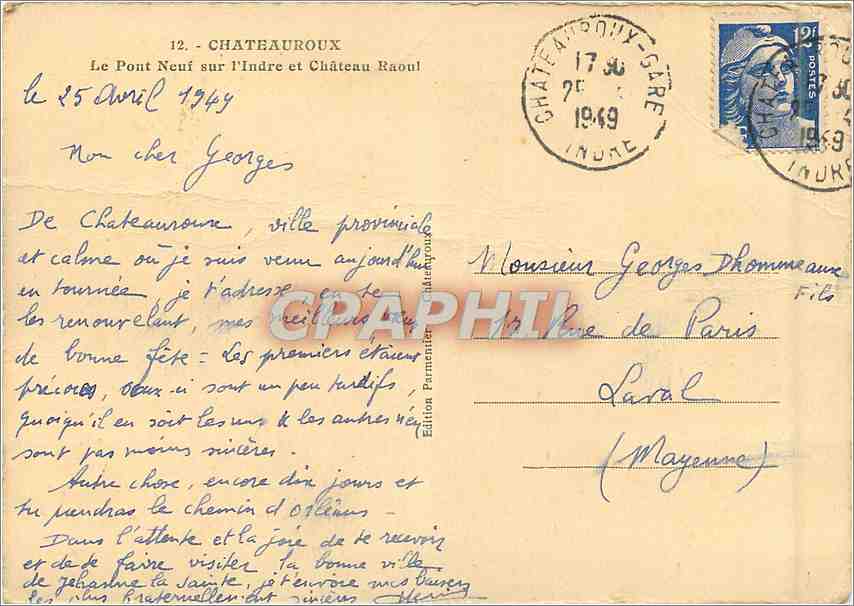 12. - CHATEAUROUX
Le Pont Neuf sur l'Indre et Château Raoul
le 25 Avril 1949
Mon cher Georges
De Chateauroux, ville provinciale
et calme où je suis venu aujourd'hui
en tournée, je t'adresse, en te
les renouvelant, mes meilleurs vœux
de bonne fête = Les premiers étaient
précoces, ceux-ci sont un peu tardifs,
quoiqu'il en soit les uns & les autres n'en
sont pas moins sincères.
Autre chose, encore dix jours et
tu prendras le chemin d'Orléans -
Dans l'attente et la joie de te recevoir
et de te faire visiter la bonne ville
de Jehanne la Sainte, je t'envoie mes baisers
les plus fraternellement sincères
Edition Parmentier Châteauroux
CHATEAUROUX-GARE
17 30
25
1949
INDRE
12f
POSTES
17 30
1949
INDRE
Monsieur Georges Dhommeaux
Fils
13 Rue de Paris
Laval
(Mayenne)
CPAPHIL